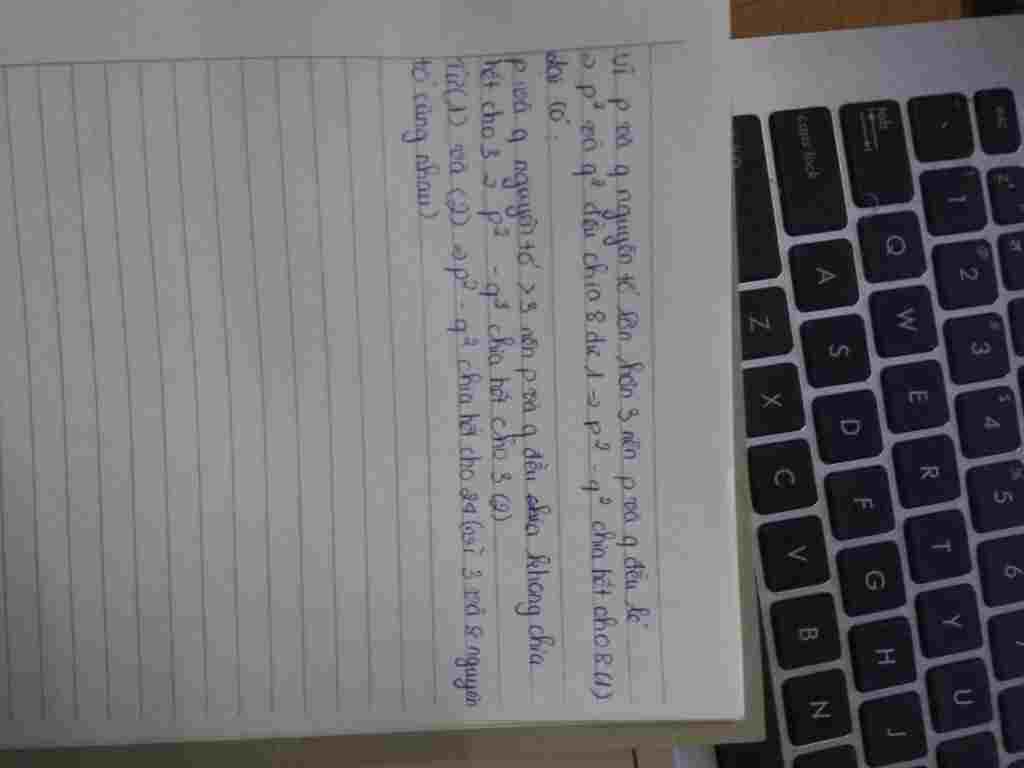 Vì p và q nguyên tố lớn hơn 3 nên p và q đều lẻ
=> p² và q² đều chia 8 dư 1 => p² - q² chia hết cho 8 (1)
lại có:
p và q nguyên tố > 3 nên p và q đều không chia
hết cho 3 => p² - q² chia hết cho 3 (2)
Từ (1) và (2) => p² - q² chia hết cho 24 (vì 3 và 8 nguyên
tố cùng nhau)
esc
` 1 2 3 4 5 6 7
tab Q W E R T Y U
caps lock A S D F G H J
Z X C V B N